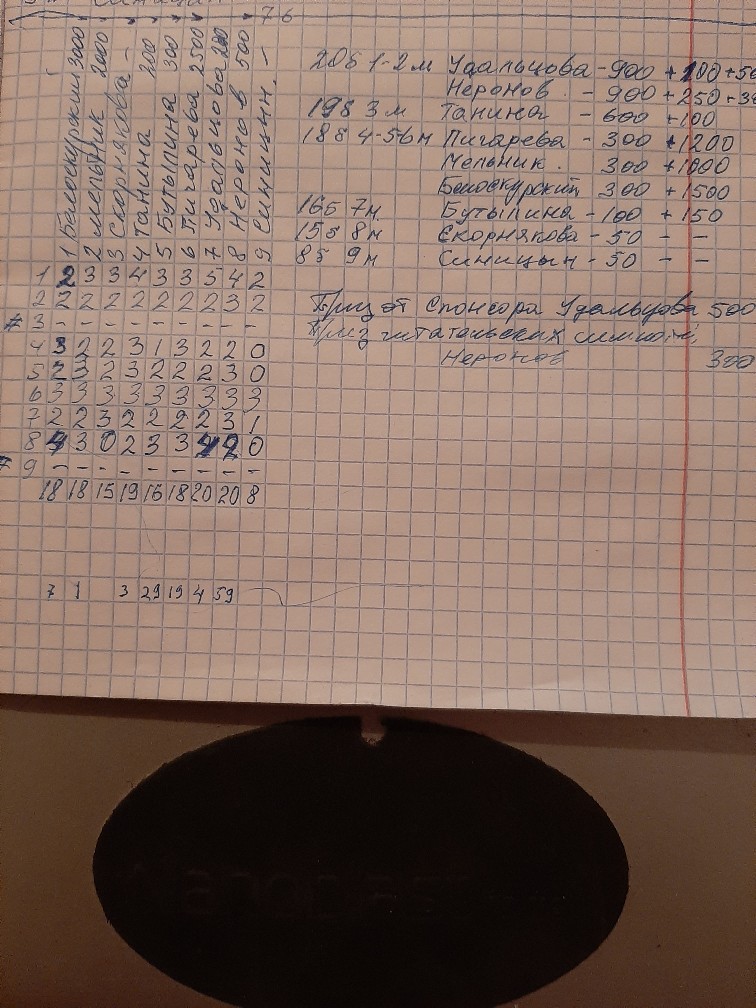 76
1 Белоскурский 3000
2 Мельник 2000
3 Скорнякова -
4 Танина 200
5 Бутылина 300
6 Пигарева 2500
7 Удальцова
8 Неронов 500
9 Синицин. -
1 2 3 3 4 3 3 5 4 2
2 2 2 2 2 2 2 2 3 2
# 3 - - - - - - - - -
4 3 2 2 3 1 3 2 2 0
5 2 3 2 3 2 2 2 3 0
6 3 3 3 3 3 3 3 3 3
7 2 2 3 2 2 2 2 3 1
8 4 3 0 2 3 3 4 2 0
9 - - - - - - - - -
18 18 15 19 16 18 20 20 8
7 1 3 29 19 4 59
20б 1-2 м Удальцова - 900 + 100 +
Неронов - 900 + 250 +
19б 3 м Танина - 600 + 100
18б 4-5-6 м Пигарева - 300 + 1200
Мельник. 300 + 1000
Белоскурский 300 + 1500
16б 7м. Бутылина - 100 + 150
15б 8м Скорнякова - 50 - -
8б 9м Синицын - 50 - -
Приз от Спонсора Удальцова 500
Приз читательских
Неронов 300